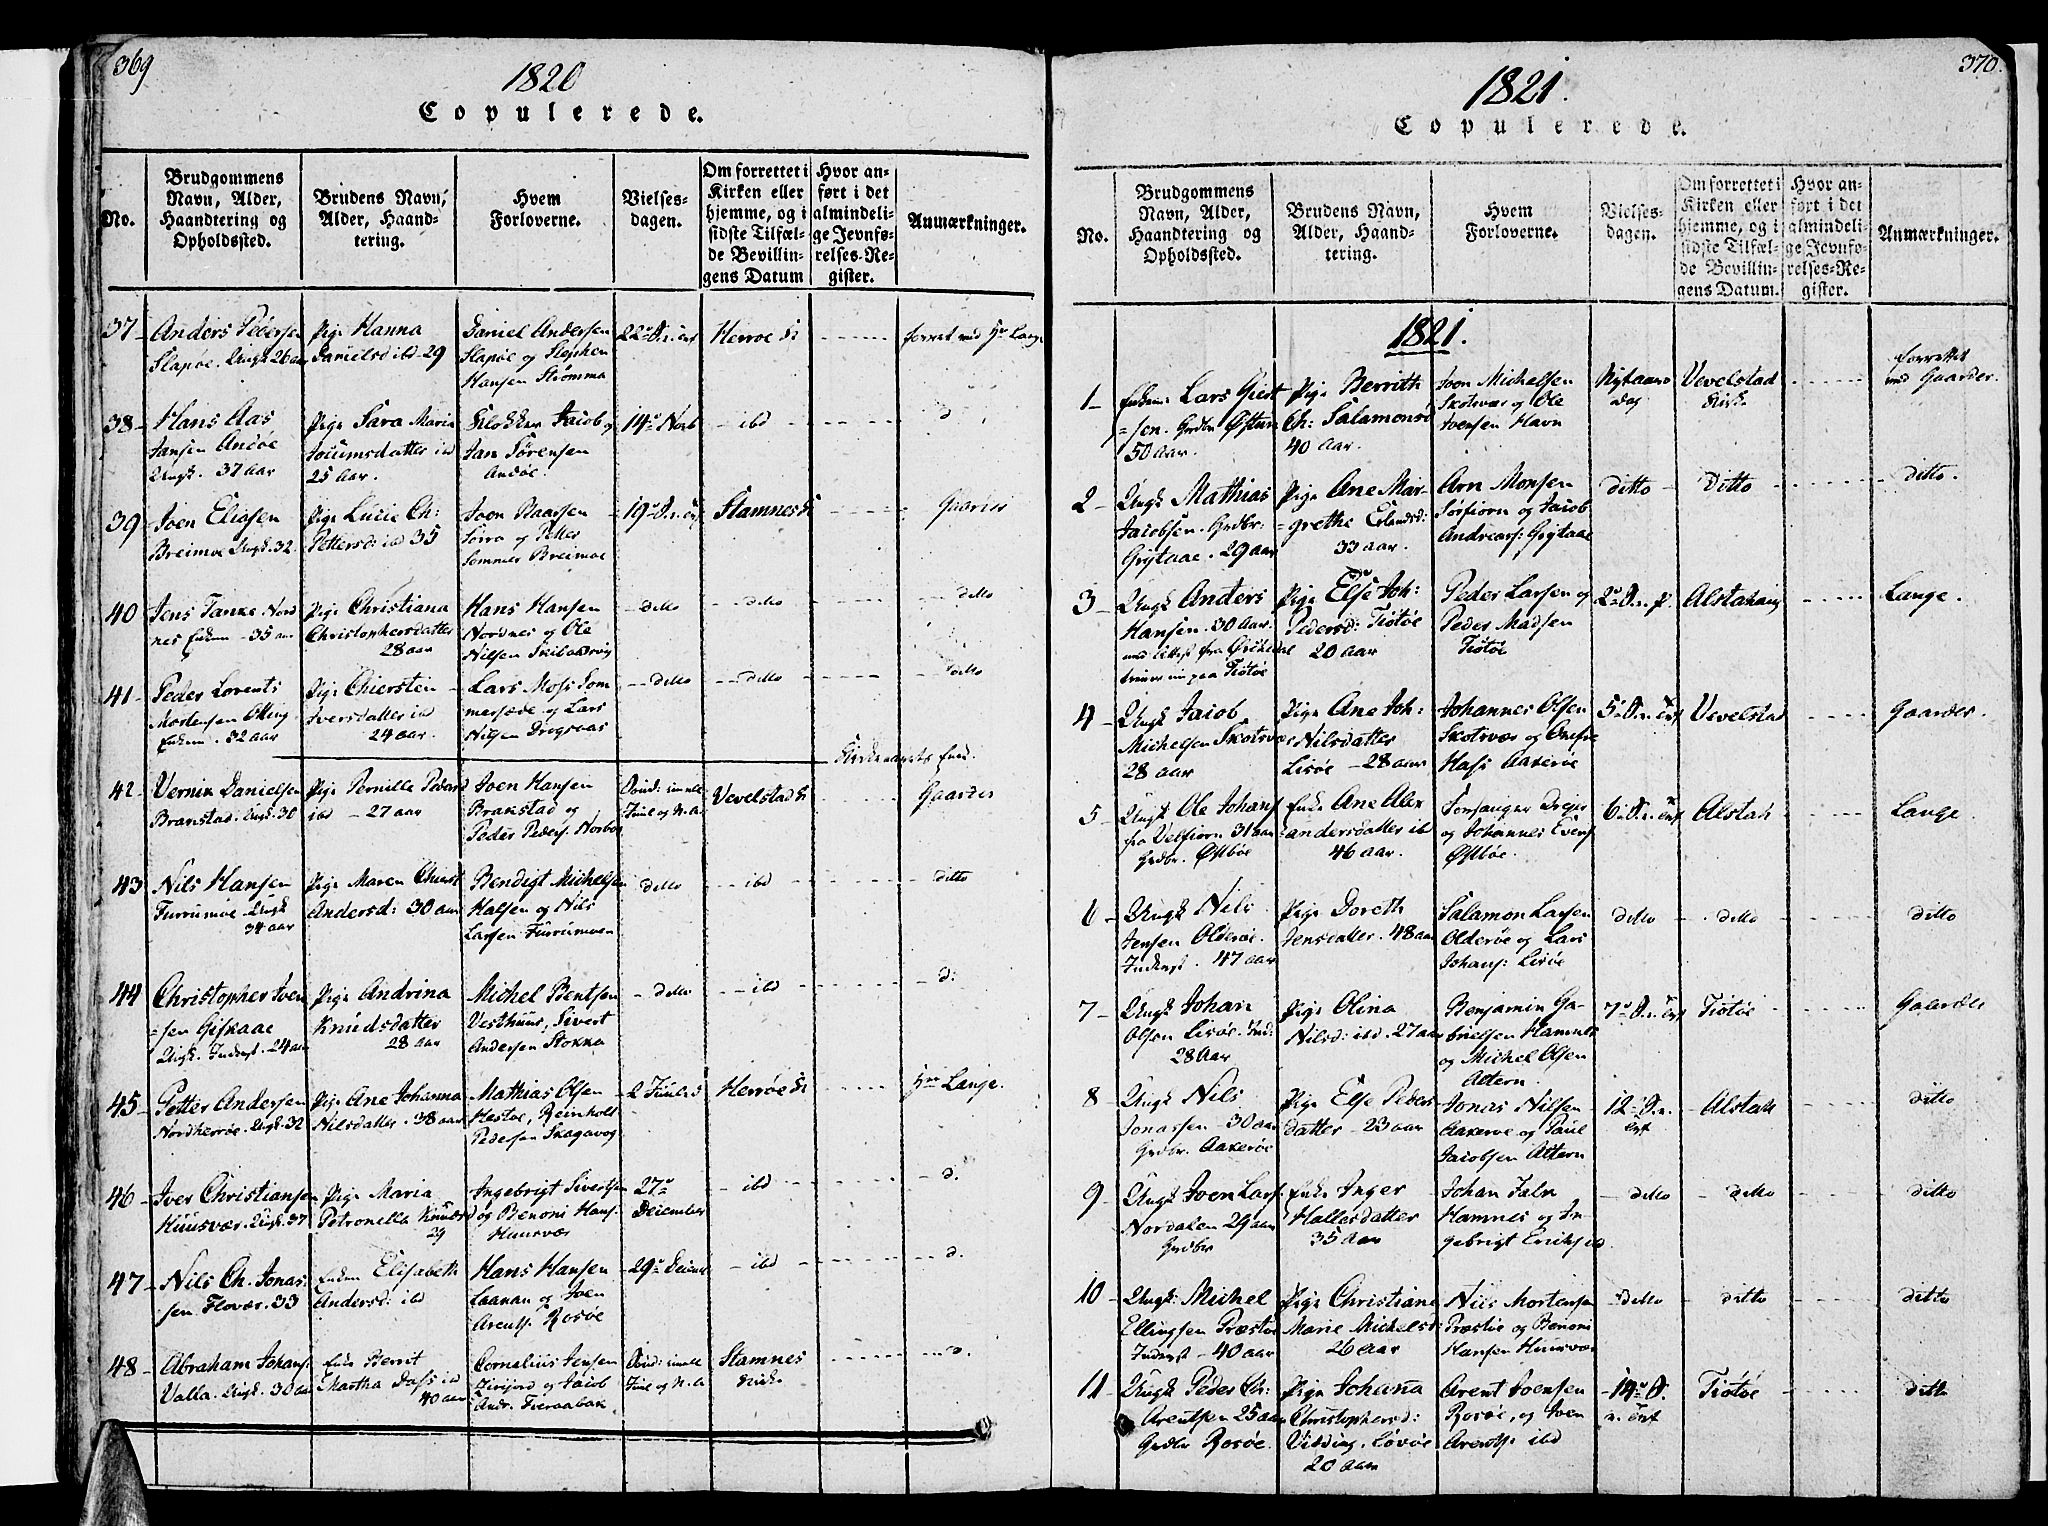 369
1820
Copulerede.
No.
Brudgommens
Navn, Alder,
Haandtering og
Opholdssted.
Brudens Navn,
Alder, Haand-
tering.
Hvem
Forloverne.
Vielses-
dagen.
Om forrettet i
Kirken eller
hjemme, og i
sidste Tilfæl-
de Bevillin-
gens Datum
Hvor an-
ført i det
almindeli-
ge Jevnfø-
relses-Re-
gister.
Anmærkninger.
37
Anders Pedersen
Slapøe. Ungk 26 aar
Pige Hanna
Danielsd ibd 29
Daniel Andersen
Slapøe og Stephen
Hansen Strømma
Herroe K
38
Hans Aas
Jansen Andøe
Ungk. 37 Aar
Pige Sara Maria
25 Aar.
Klokker Jacob og
Jan Sørensen
Andøe.
14de Novb
ibd
d
39
Joen Eliasen
Breimoe Ungk. 32
Pige Lucie Ch:
Pettersd: ibd 35
Joen
og Petter
Sommer Breimoe
Stamnes K
Gaarder
40
Jens Tanke Nord
nes Enkm 35 aar
Pige Christiana
Christophersdatter
28 aar
Hans Hansen
Nordnes og Ole
Nilsen
ditto
ditto
ditto
41
Peder Lorents
Mortensen
Enkm. 32 aar
Pige Chiersten
Iversdatter ibd
24 aar.
Lars Moss Som
og Lars
Nilsen
ditto
ditto
ditto
Kirkeaarets Ende.
42
Vernik Danielsen
Ungk. 30
Pige Pernille Pedersd
ibd 27 aar
Joen Hansen
Brakstad og
Peder Peders. Norbøe
Vevelstad K
Gaarder
43
Nils Hansen
Furrumoe Ungk
34 aar
Pige Maren Chirst
Andersd: 30 aar
Bendigt Michelsen
Halsen og Nils
Larsen Furrumoen
ditto
ibd
ditto
44
Christopher Iver
=sen Giskaae
Ungk. Inderst. 24 aar
Pige Andrina
Knudsdatter
28 aar
Michel Bentsen
Vesthuus, Sivert
Andersen Stokka
ditto
ibd
d:
45
Petter Andersen
Nordherrøe Ungk 32
Pige Ane Johanna
Nilsdatter. 38 aar
Mathias Olsen
Hestøe, Reinholt
Pedersen Skagavog
2 Juuled
Herrøe K
Hr Lange.
46
Iver Christiansen
Huusvær. Ungk. 37
Pige Maria
Petronella Knudsd
29
Ingebrigt Sivertsen
og Benoni Hans.
Huusvær
27de
December
ibd
d.
47
Nils Ch. Jonas
sen Flovær. 33
Enken Elisabeth
Andersd: ibd
Hans Hansen
Laanan og Joen
Arents. Rosøe
29de
ibd
d.
48
Abraham Johans.
Valla. Ungk. 30 aar
Enke Berrit
Martha Dass ibd
40 aar
Cornelius Jensen
og Jacob
Andr.
Stamnes
Kirke
d.
370.
1821.
Copulerede.
No.
Brudgommens
Navn, Alder,
Haandtering og
Opholdssted.
Brudens Navn,
Alder, Haand-
tering.
Hvem
Forloverne.
Vielses-
dagen.
Om forrettet i
Kirken eller
hjemme, og i
sidste Tilfæl-
de Bevillin-
gens Datum.
Hvor an-
ført i det
almindeli-
ge Jevnfø-
relses-Re-
gister.
Anmærkninger.
1821.
1
Enkem: Lars Giert
=sen. Grdbr
50 aar.
Pige Berrith
Ch: Salamonsd
40 Aar.
Joen Michelsen
Skotsvær og Ole
Joensen Havn
Nytaars
Dag
Vevelstad
Kirk.
forrettet
ved Gaarder.
2
Ungk Mathias
Jacobsen. Grdbr:
Grytaae. 29 aar
Pige Ane Mar-
=grethe Erlandsd:
33 aar.
Arn Monsen
Sørfiorn og Jacob
Andreas: Grytaae
ditto
ditto
ditto.
3
Ungk Anders
Hansen. 30 Aar.
Tiøtøe
Pige Else Joh:
Pedersd: Tiøtøe
20 aar
Peder Larsen og
Peder Madsen
Tiøtøe
Alstahaug
Lange.
4
Ungk Jacob
Michelsen Skotsvær
28 aar
Pige Ane Joh:
Nilsdatter
Lisøe 28 aar
Johannes Olsen
Skotsvær og Onefre
Hass Aakerøe
Vevelstad
Gaarder.
5
Ungk Ole Johans
fra Velfiorn 31 aar
Grdbr. Østbøe
Enke Ane Alex
=andersdatter ibd
46 aar.
og Johannes Evens
Østbøe.
Alstah
Lange.
6
Ungk Nils
Jensen Olderøe.
Inderst. 47 aar
Pige Doreth
Jensdatter. 48 aar
Salamon Larsen
Olderøe og Lars
Johans: Lisøe
ditto
ditto
ditto
7
Ungk Johan
Olsen Lisøe. Ind:
28 Aar
Pige Olina
Nilsd: ibd. 27 aar
Benjamin Ga-
brielsen Hamnes
og Michel Olsen
Altern.
Tiøtøe
Gaarder
8
Ungk Nils
Jonassen 30 aar
Grdbr. Aakerøe
Pige Else Peders
datter 23 aar
Jonas Nilsen
Aakerøe og Paul
Jacobsen Altern
Alstah
ditto
9
Ungk Joen Lars.
Nordaken 29 aar
Grdbr
Enke Inger
Hallesdatter
35 Aar
Johan Falk
Hamnes og In
gebrigt Eriks ibd
ditto
ditto
ditto
10
Ungk: Michel
Ellingsen Præstøe
Inderst 40 aar
Pige Christiane
Marie Michelsd:
26 Aar
Nils Mortensen
Præstøe og Benoni
Hansen Huusvær
ditto
ditto
ditto
11
Ungk Peder Ch:
Arentsen 25 aar
Grdbr Rosøe.
Pige Johana
Christophersd:
Vilding. Løvøe
20 Aar
Arent Joensen
Rosøe, og Joen
Arents. ibd
Tiøtøe
ditto